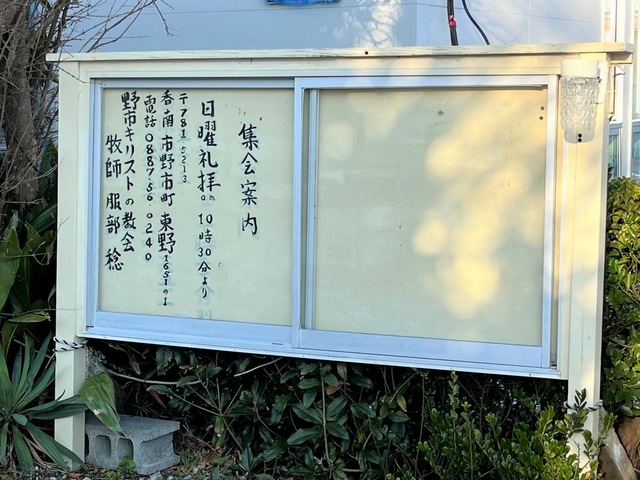 集会案内
日曜礼拝 10時30分より
〒781-5213
香南市野市町東野1651の1
電話0887.56.0240
野市キリストの教会
牧師 服部 稔